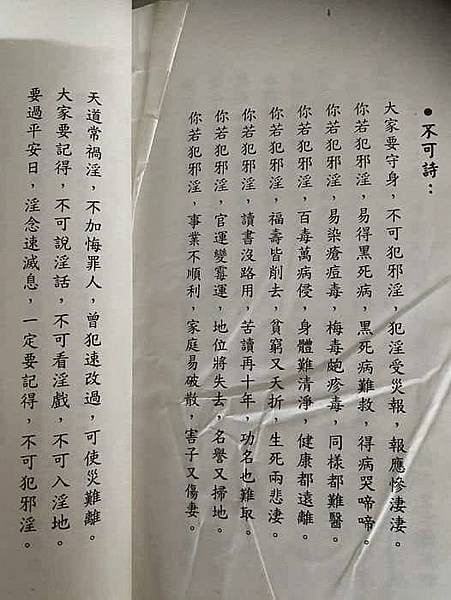 ●不可詩：
大家要守身，不可犯邪淫，犯淫受災報，報應慘淒淒。
你若犯邪淫，易得黑死病，黑死病難救，得病哭啼啼。
你若犯邪淫，易染瘡痘毒，梅毒皰疹毒，同樣都難醫。
你若犯邪淫，百毒萬病侵，身體難清淨，健康都遠離。
你若犯邪淫，福壽皆削去，貧窮又夭折，生死兩悲淒。
你若犯邪淫，讀書沒路用，苦讀再十年，功名也難取。
你若犯邪淫，官運變霉運，地位將失去，名譽又掃地。
你若犯邪淫，事業不順利，家庭易破散，害子又傷妻。
天道常禍淫，不加悔罪人，曾犯速改過，可使災難離。
大家要記得，不可說淫話，不可看淫戲，不可入淫地。
要過平安日，淫念速滅息，一定要記得，不可犯邪淫。